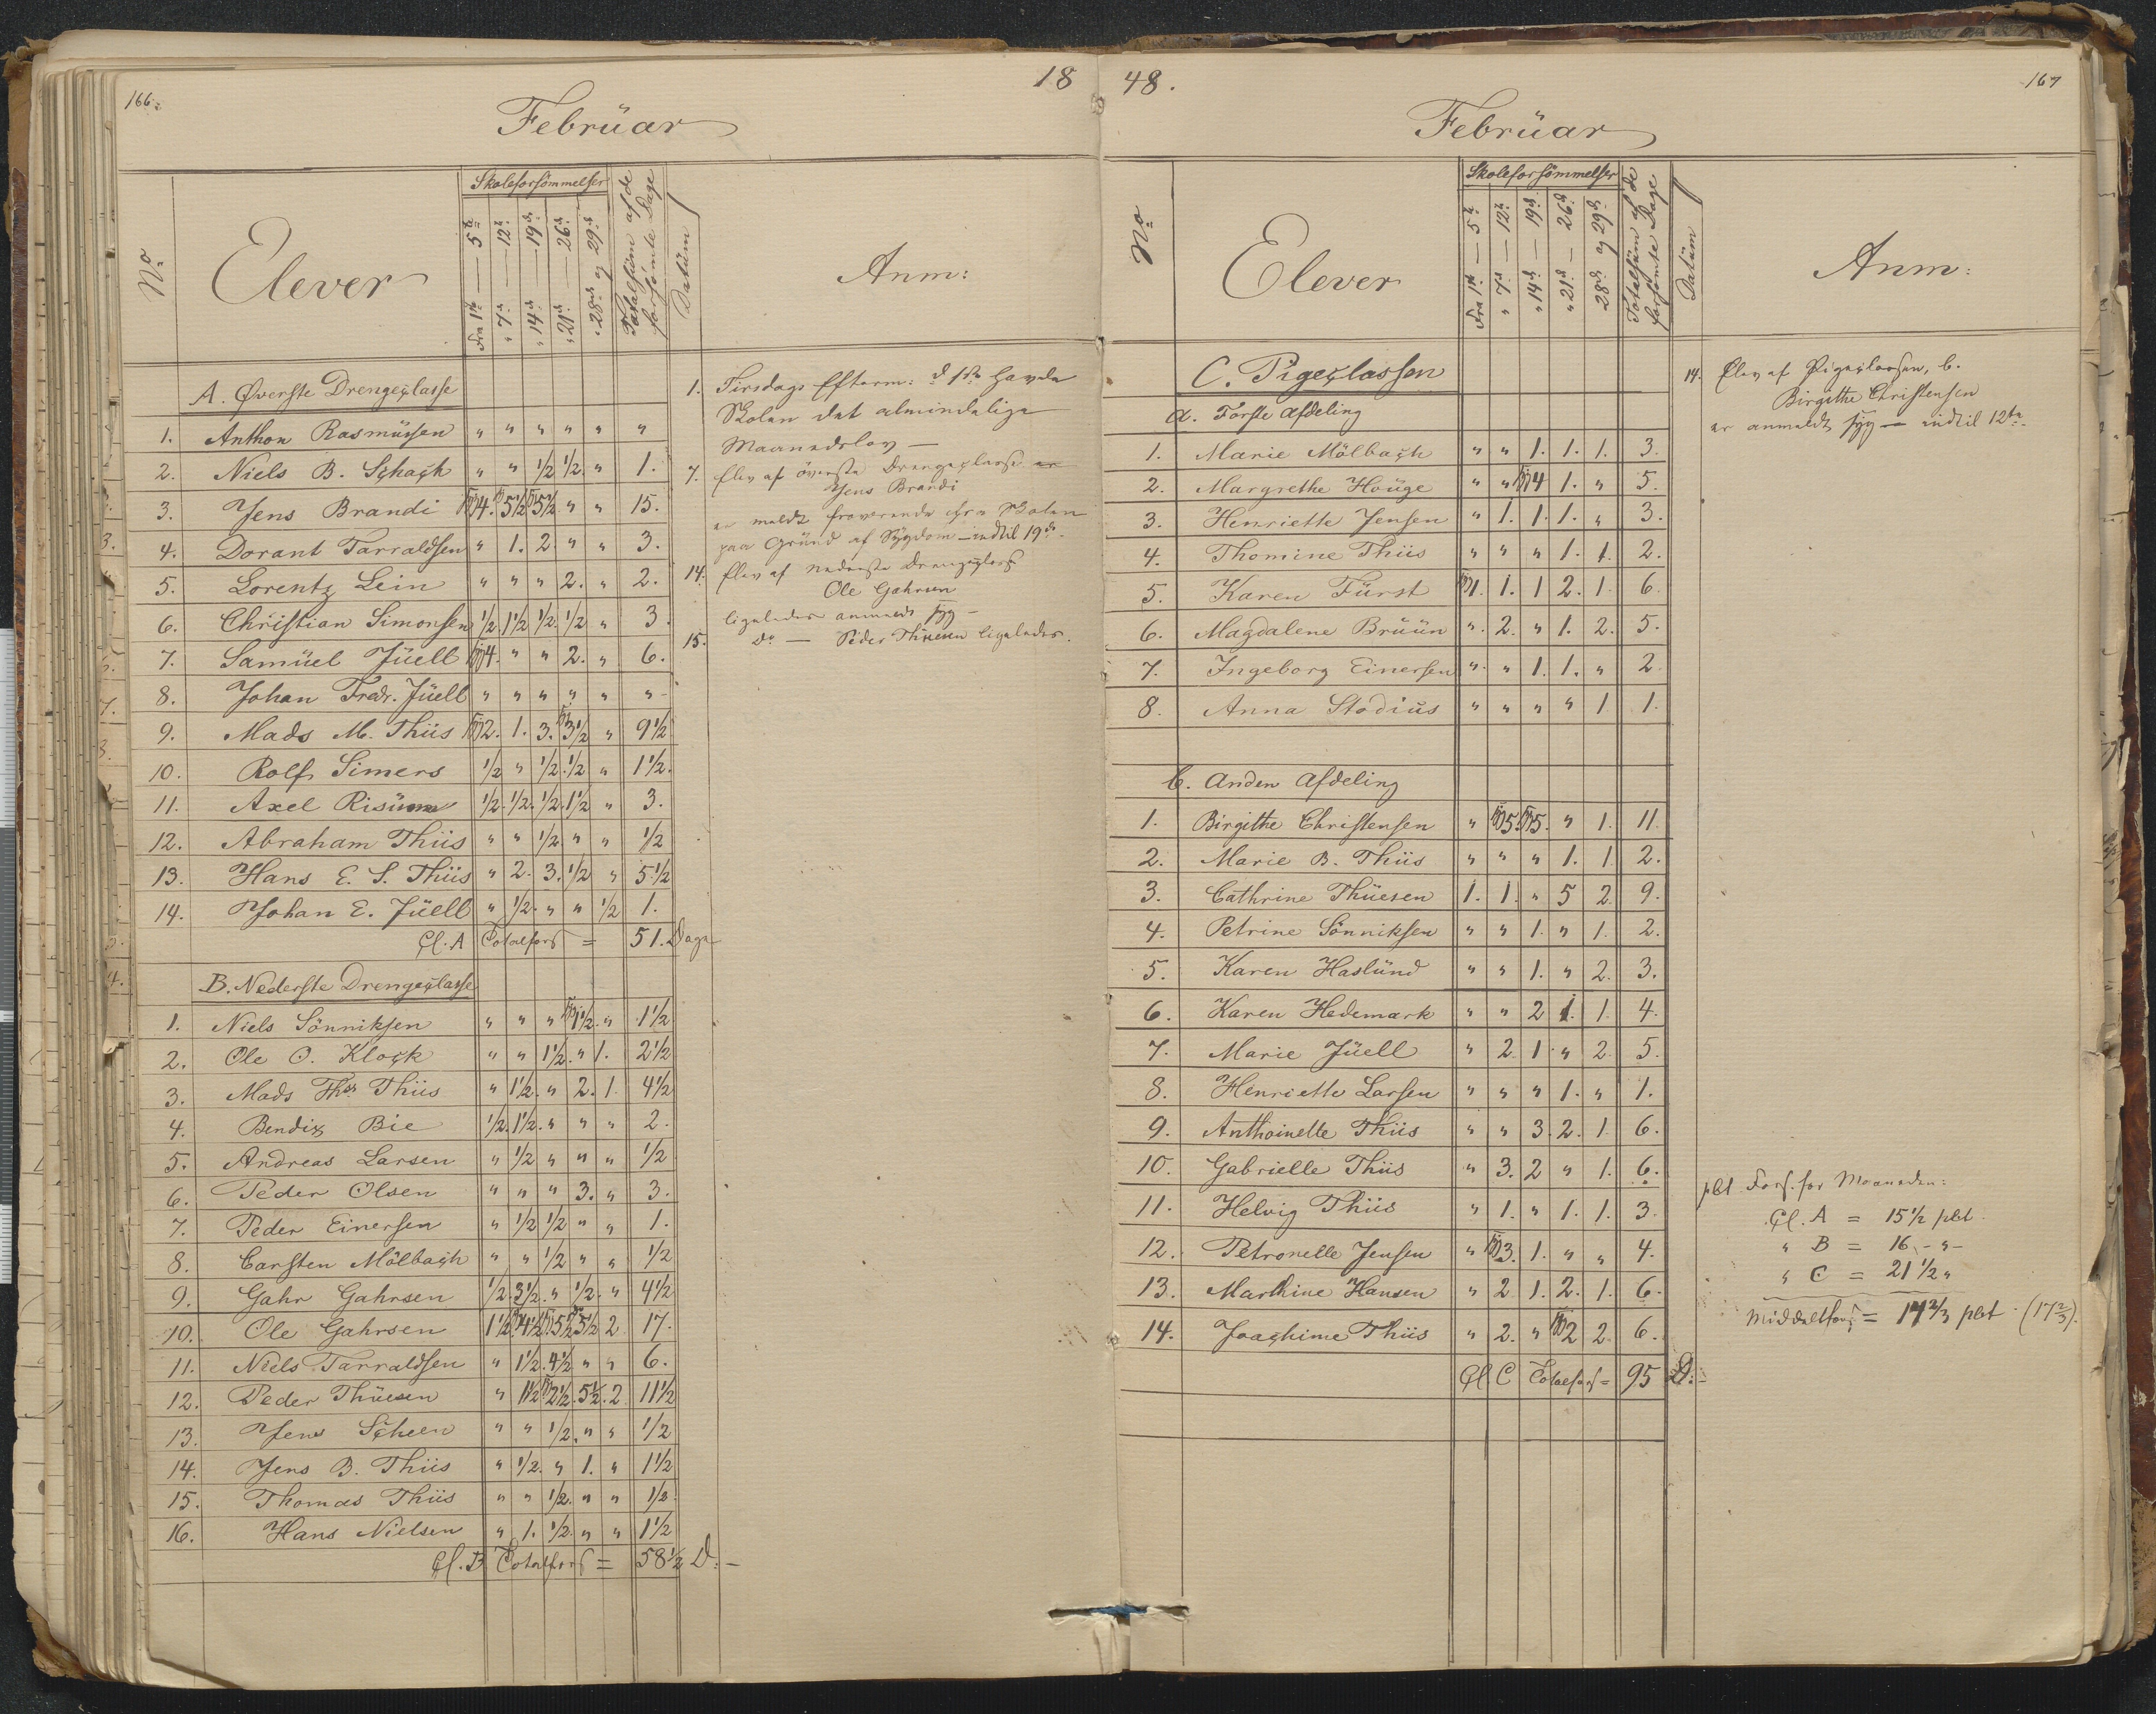 166.
18
Februar
No
Elever
Skoleforsömmelser
Fra 1ste — 5te
" 7de — 12te
" 14de — 19de
" 21de — 26de
" 28de og 29de
Totalsum af de forsömte Dage
Datum
Anm:
A. Øverste Drengeclasse
1. Anthon Rasmüssen " " " " " "
2. Niels B. Schach " " 1/2 1/2. " 1.
3. Jens Brandi 4. 5 1/2 5 1/2 " " 15.
4. Dorant Tarraldsen " 1. 2. " " 3.
5. Lorentz Lein " " " 2. " 2.
6. Christian Simonsen 1/2. 1 1/2 1/2. 1/2 " 3
7. Samüel Jüell 4. " " 2. " 6.
8. Johan Fredr. Jüell " " " " " "
9. Mads M. Thiis 2. 1. 3. 3 1/2 " 9 1/2
10. Rolf Simers 1/2 " 1/2. 1/2 " 1 1/2.
11. Axel Risüm 1/2. 1/2. 1/2. 1 1/2 " 3.
12. Abraham Thiis " " 1/2 " " 1/2
13. Hans E. S. Thiis " 2. 3. 1/2 " 5 1/2
14. Johan E. Jüell " 1/2. " " 1/2 1.
Cl. A Totalfors = 51. Dage
B. Nederste Drengeclasse
1. Niels Sönniksen " " " 1 1/2. " 1 1/2
2. Ole O. Klock " " 1 1/2. " 1. 2 1/2
3. Mads Ths Thiis " 1 1/2. " 2. 1. 4 1/2
4. Bendix Bie 1/2. 1 1/2. " " " 2.
5. Andreas Larsen " 1/2 " " " 1/2
6. Peder Olsen " " " 3. " 3.
7. Peder Einersen " 1/2 1/2 " " 1.
8. Carsten Mölbach " " 1/2 " " 1/2
9. Gahr Gahrsen 1/2. 3 1/2. " 1/2. " 4 1/2
10. Ole Gahrsen 1 1/2 4 1/2 5 1/2 5 1/2 2 17.
11. Niels Tarraldsen " 1 1/2. 4 1/2 " " 6.
12. Peder Thüesen " 1 1/2 2 1/2. 5 1/2. 2. 11 1/2
13. Jens Scheen " " 1/2. " " 1/2
14. Jens B. Thiis " 1/2. " 1. " 1 1/2
15. Thomas Thiis " " 1/2. " " 1/2.
16. Hans Nielsen " 1. 1/2. " " 1 1/2
Cl. B Totalfors = 58 1/2 D. —
1. Tirsdags Efterm: d 1ste havde
Skolen det almindelige
Maanedslov —
7. Elev af överste Drengeclasse
Jens Brandi
er meldt fraværende fra Skolen
paa Grund af Sygdom — indtil 19de
14. Elev af nederste Drengeclasse
Ole Gahrsen
ligeledes anmeldt syg —
15. do — Peder Thüesen ligeledes.
48.
167
Februar
No
Elever
Skoleforsömmelser
Fra 1ste — 5te
" 7de — 12te
" 14de — 19de
" 21de — 26de
" 28de og 29de
Totalsum af de forsömte Dage
Datum
Anm:
C. Pigeclassen
a. Förste Afdeling
1. Marie Mölbach " " 1. 1. 1. 3.
2. Margrethe Houge " " 4 1. " 5.
3. Henriette Jensen " 1. 1. 1. " 3.
4. Thomine Thiis " " " 1. 1. 2.
5. Karen Fürst 1. 1. 1 2. 1. 6.
6. Magdalene Bruün " 2. " 1. 2. 5.
7. Ingeborg Einersen " " 1. 1. " 2.
8. Anna Stodius " " " " 1 1.
b. Anden Afdeling
1. Birgithe Christensen " 5. 5. " 1. 11.
2. Marie B. Thiis " " " 1. 1. 2.
3. Cathrine Thüesen 1. 1. " 5 2. 9.
4. Petrine Sönniksen " " 1. " 1. 2.
5. Karen Haslünd " " 1. " 2. 3.
6. Karen Hedemark " " 2 1. 1. 4.
7. Marie Jüell " 2. 1. " 2. 5.
8. Henriette Larsen " " " 1. " 1.
9. Anthoinette Thiis " " 3. 2. 1. 6.
10. Gabrielle Thiis " 3. 2 " 1. 6.
11. Helvig Thiis " 1. " 1. 1. 3.
12. Petronelle Jensen " 3. 1. " " 4.
13. Marthine Hansen " 2 1. 2. 1. 6.
14. Joachime Thiis " 2. " 2 2. 6.
Cl. C Totalfors = 95 D. —
14. Elev af Pigeclassen, b.
Birgithe Christensen
er anmeldt syg — indtil 12te
pCt Fors. for Maaneden:
Cl. A = 15 1/2 pCt.
" B = 16 - " -
" C = 21 1/2 "
Middelfors = 17 2/3 pCt (17 2/3).